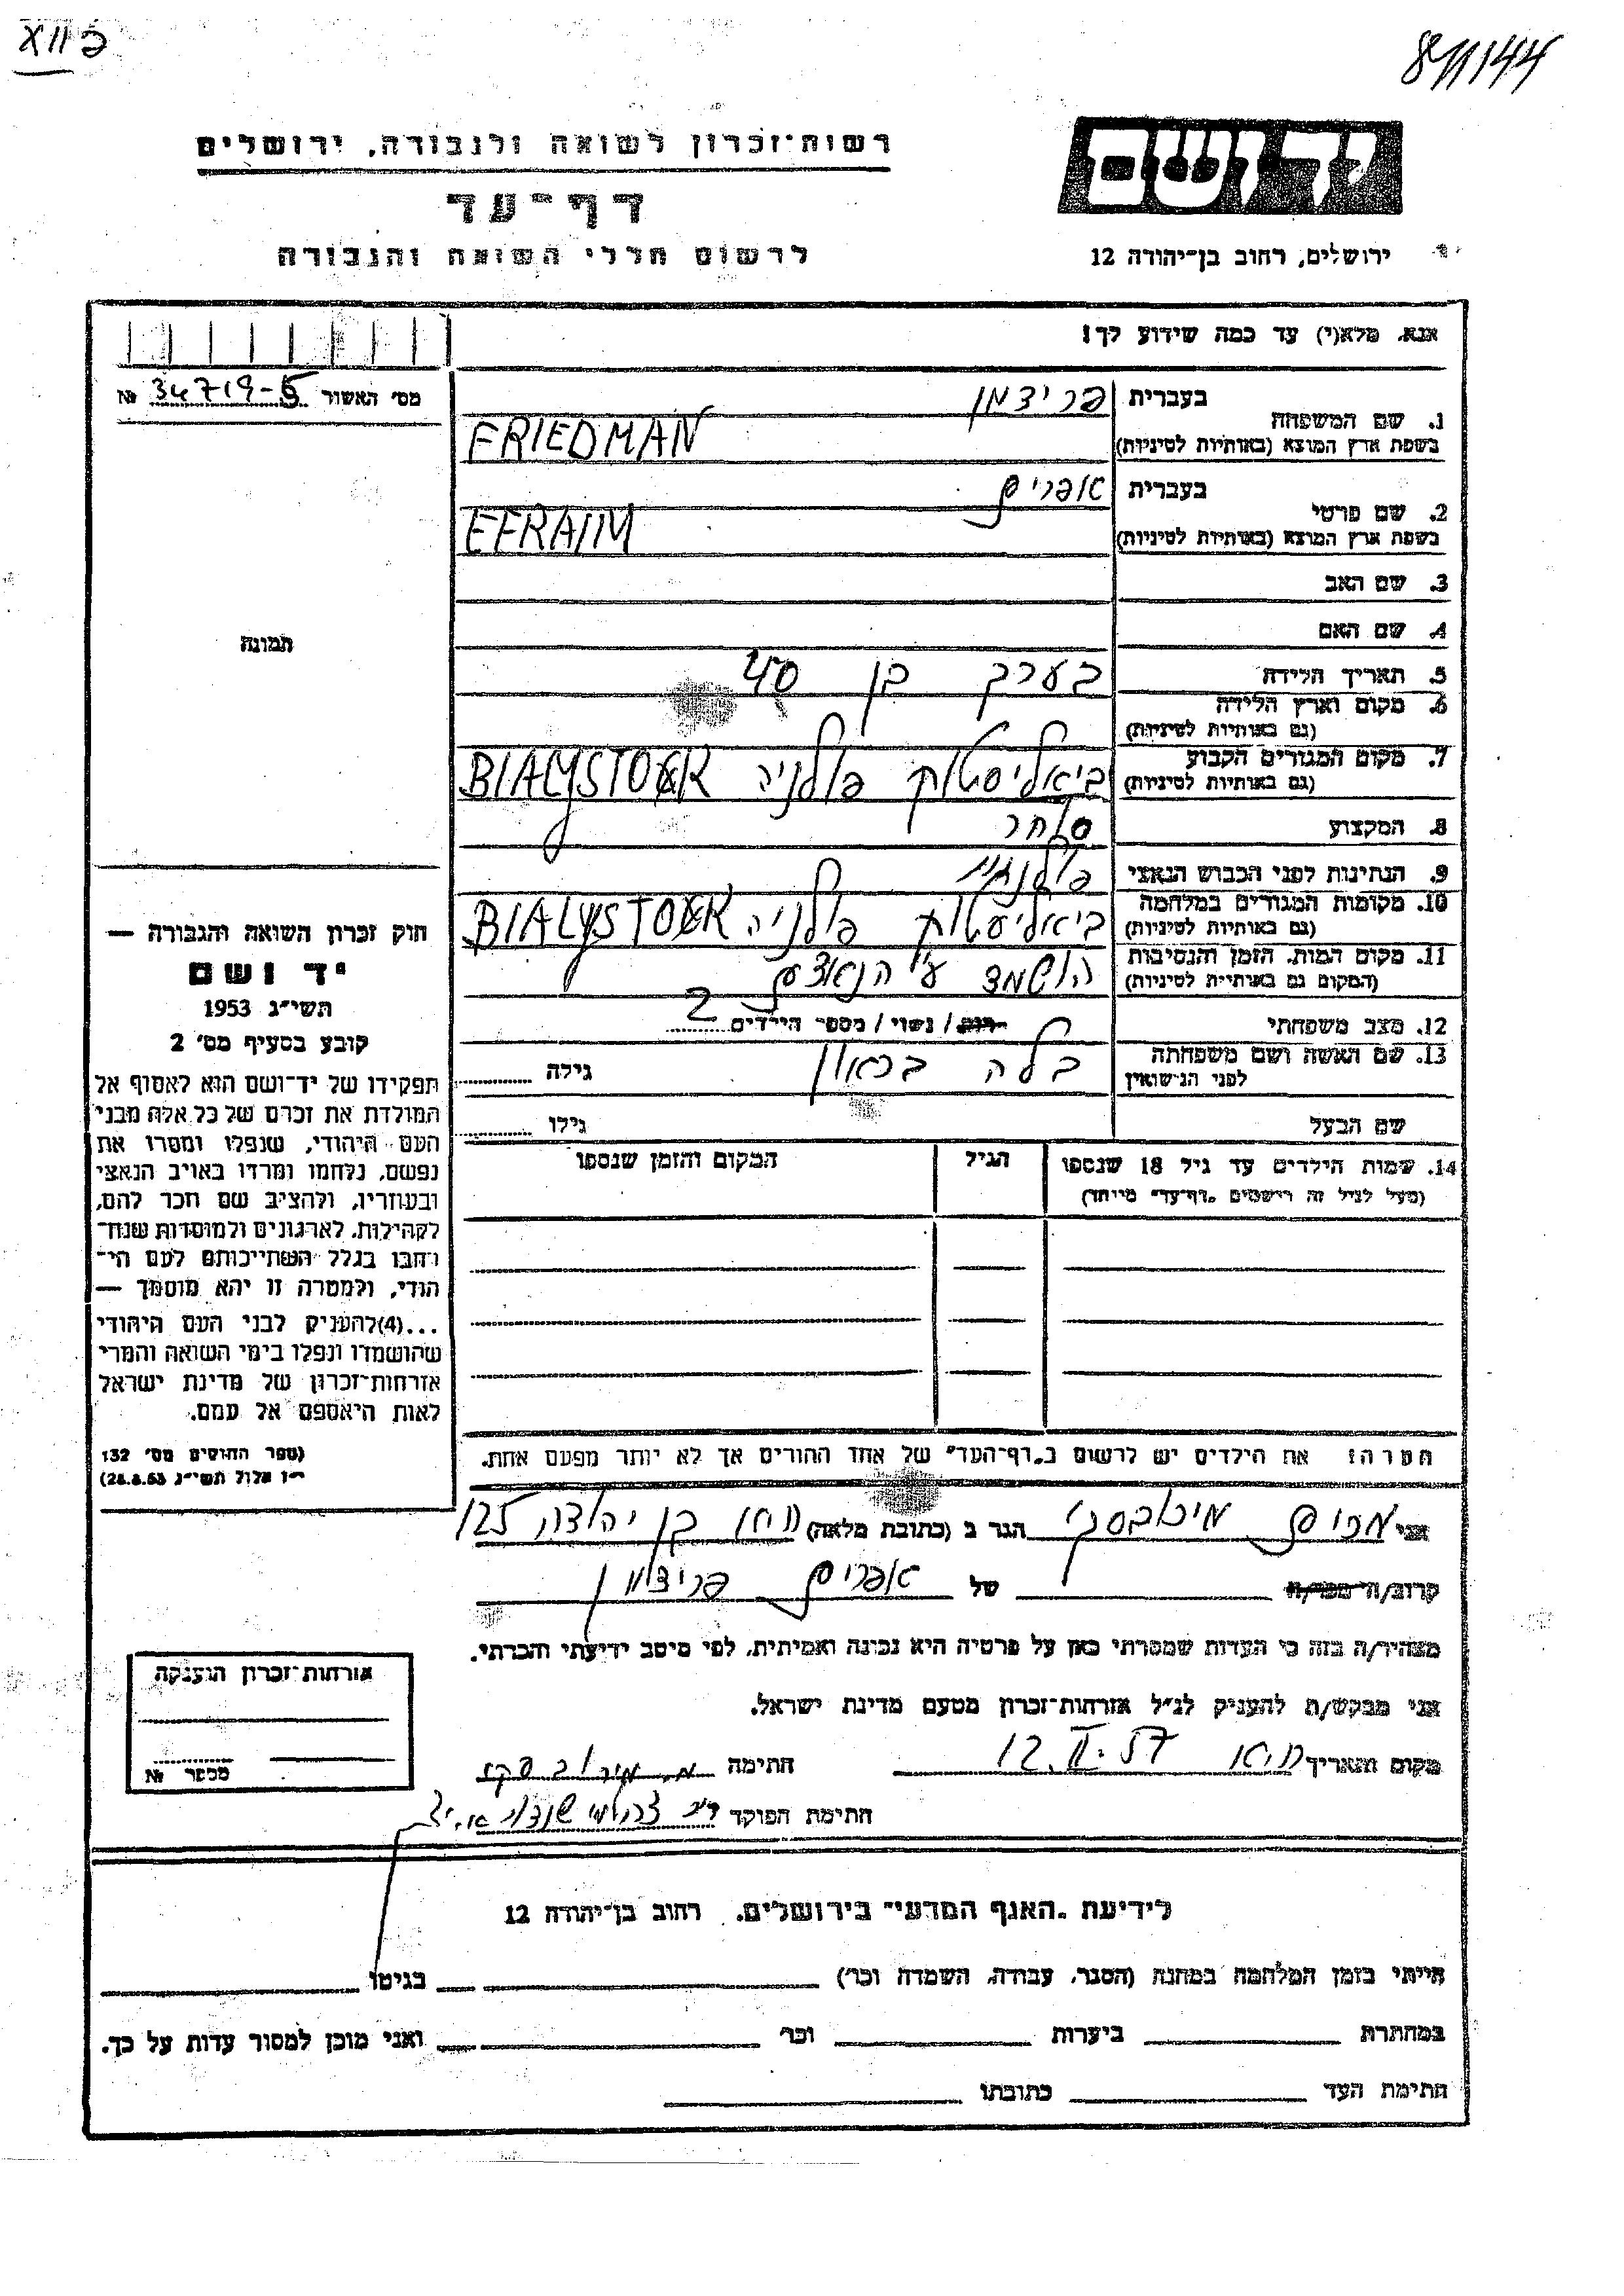 פ XII
811144
רשות־זכרון לשואה ולגבורה, ירושלים
יד ושם
דף־עד
לרשום חללי השואה והגבורה
ירושלים, רחוב בן־יהודה 12
אנא, מלא(י) עד כמה שידוע לך!
מס׳ האשור 34719-5 №
1. שם המשפחה
בעברית פרידמן
בשפת ארץ המוצא (באותיות לטיניות) FRIEDMAN
2. שם פרטי
בעברית אפרים
בשפת ארץ המוצא (באותיות לטיניות) EFRAIM
3. שם האב
4. שם האם
תמונה
5. תאריך הלידה בערך בן 40
6. מקום וארץ הלידה
(גם באותיות לטיניות)
7. מקום המגורים הקבוע
(גם באותיות לטיניות) ביאליסטוק פולניה BIALYSTOK
8. המקצוע סוחר
9. הנתינות לפני הכבוש הנאצי פולנית
10. מקומות המגורים במלחמה
(גם באותיות לטיניות) ביאליסטוק פולניה BIALYSTOK
11. מקום המות, הזמן והנסיבות
(המקום גם באותיות לטיניות) הושמד ע"י הנאצים
12. מצב משפחתי רווק / נשוי / מספר הילדים 2
13. שם האשה ושם משפחתה
לפני הנישואין בלה גילה
שם הבעל גילו
14. שמות הילדים עד גיל 18 שנספו הגיל המקום והזמן שנספו
(מעל לגיל זה רישמים „דף־עד״ מיוחד)
חוק זכרון השואה והגבורה —
יד ושם
תשי״ג 1953
קובע בסעיף מס׳ 2
תפקידו של יד־ושם הוא לאסוף אל
המולדת את זכרם של כל אלה מבני
העם היהודי, שנפלו ומסרו את
נפשם, נלחמו ומרדו באויב הנאצי
ובעוזריו, ולהציב שם וזכר להם,
לקהילות, לארגונים ולמוסדות שנח־
רבו בגלל השתייכותם לעם הי־
הודי, ולמטרה זו יהא מוסמך —
...(4) להעניק לבני העם היהודי
שהושמדו ונפלו בימי השואה והמרי
אזרחות־זכרון של מדינת ישראל
לאות היאספם אל עמם.
(ספר החוקים מס׳ 132
י״ז אלול תשי״ג 28.8.53)
הערה: את הילדים יש לרשום ב„דף־העד״ של אחד ההורים אך לא יותר מפעם אחת.
אני הגר ב (כתובת מלאה) בן יהודה 125
קרוב/ה מכר/ה של אפרים פרידמן
מצהיר/ה בזה כי העדות שמסרתי כאן על פרטיה היא נכונה ואמיתית, לפי מיטב ידיעתי והכרתי.
אני מבקש/ת להעניק לנ״ל אזרחות־זכרון מטעם מדינת ישראל.
מקום ותאריך ת"א 12.II.57 חתימה
חתימת הפוקד
אזרחות־זכרון הוענקה
מספר №
לידיעת „האגף המדעי״ בירושלים, רחוב בן־יהודה 12
הייתי בזמן המלחמה במחנה (הסגר, עבודה, השמדה וכר׳) בגיטו
במחתרת ביערות וכר׳ ואני מוכן למסור עדות על כך.
חתימת העד כתובתו